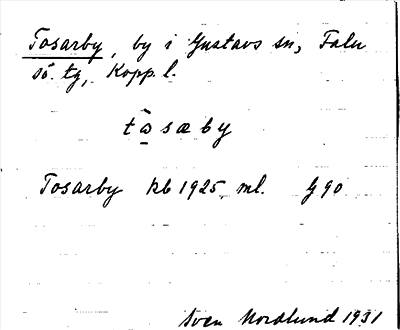 Tosarby, by i Gustavs sn, Falu
sö. tg, Kopp. l.
tòsæby
Tosarby kb 1925, ml. G 90
Sven Nordlund 1931